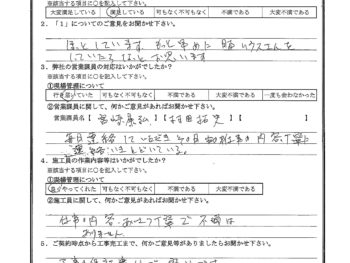 ※該当する項目に○を記入して下さい。
大変満足している 満足している 可もなく不可もなく 不満である 大変不満である
2．「１」についてのご意見をお聞かせ下さい。
ほっとしています。もっと早めに
していて よかった と思います
3．弊社の営業課員の対応はいかがでしたか？
①現場管理について
※該当する項目に○を記入して下さい。
行き届いていた 可もなく不可もなく 不満である 大変不満である 一度も会わなかった
②営業員に関して、何かご意見があればお聞かせ下さい。
営業員名【 宮崎康弘 】【 村田 】【 】
毎日連絡していただき その日の お仕事の内容 丁寧に
連絡いただいている。
4．施工員の作業内容等はいかがでしたか？
①現場管理について
※該当する項目に○を記入して下さい。
良くやってくれた 可もなく不可もなく 不満である 大変不満である
②施工員に関して、何かご意見があればお聞かせ下さい。
仕事の内容 丁寧で 不満は
ありません
5．ご契約時点から工事完工まで、何かご意見等がありましたらお聞かせ下さい。